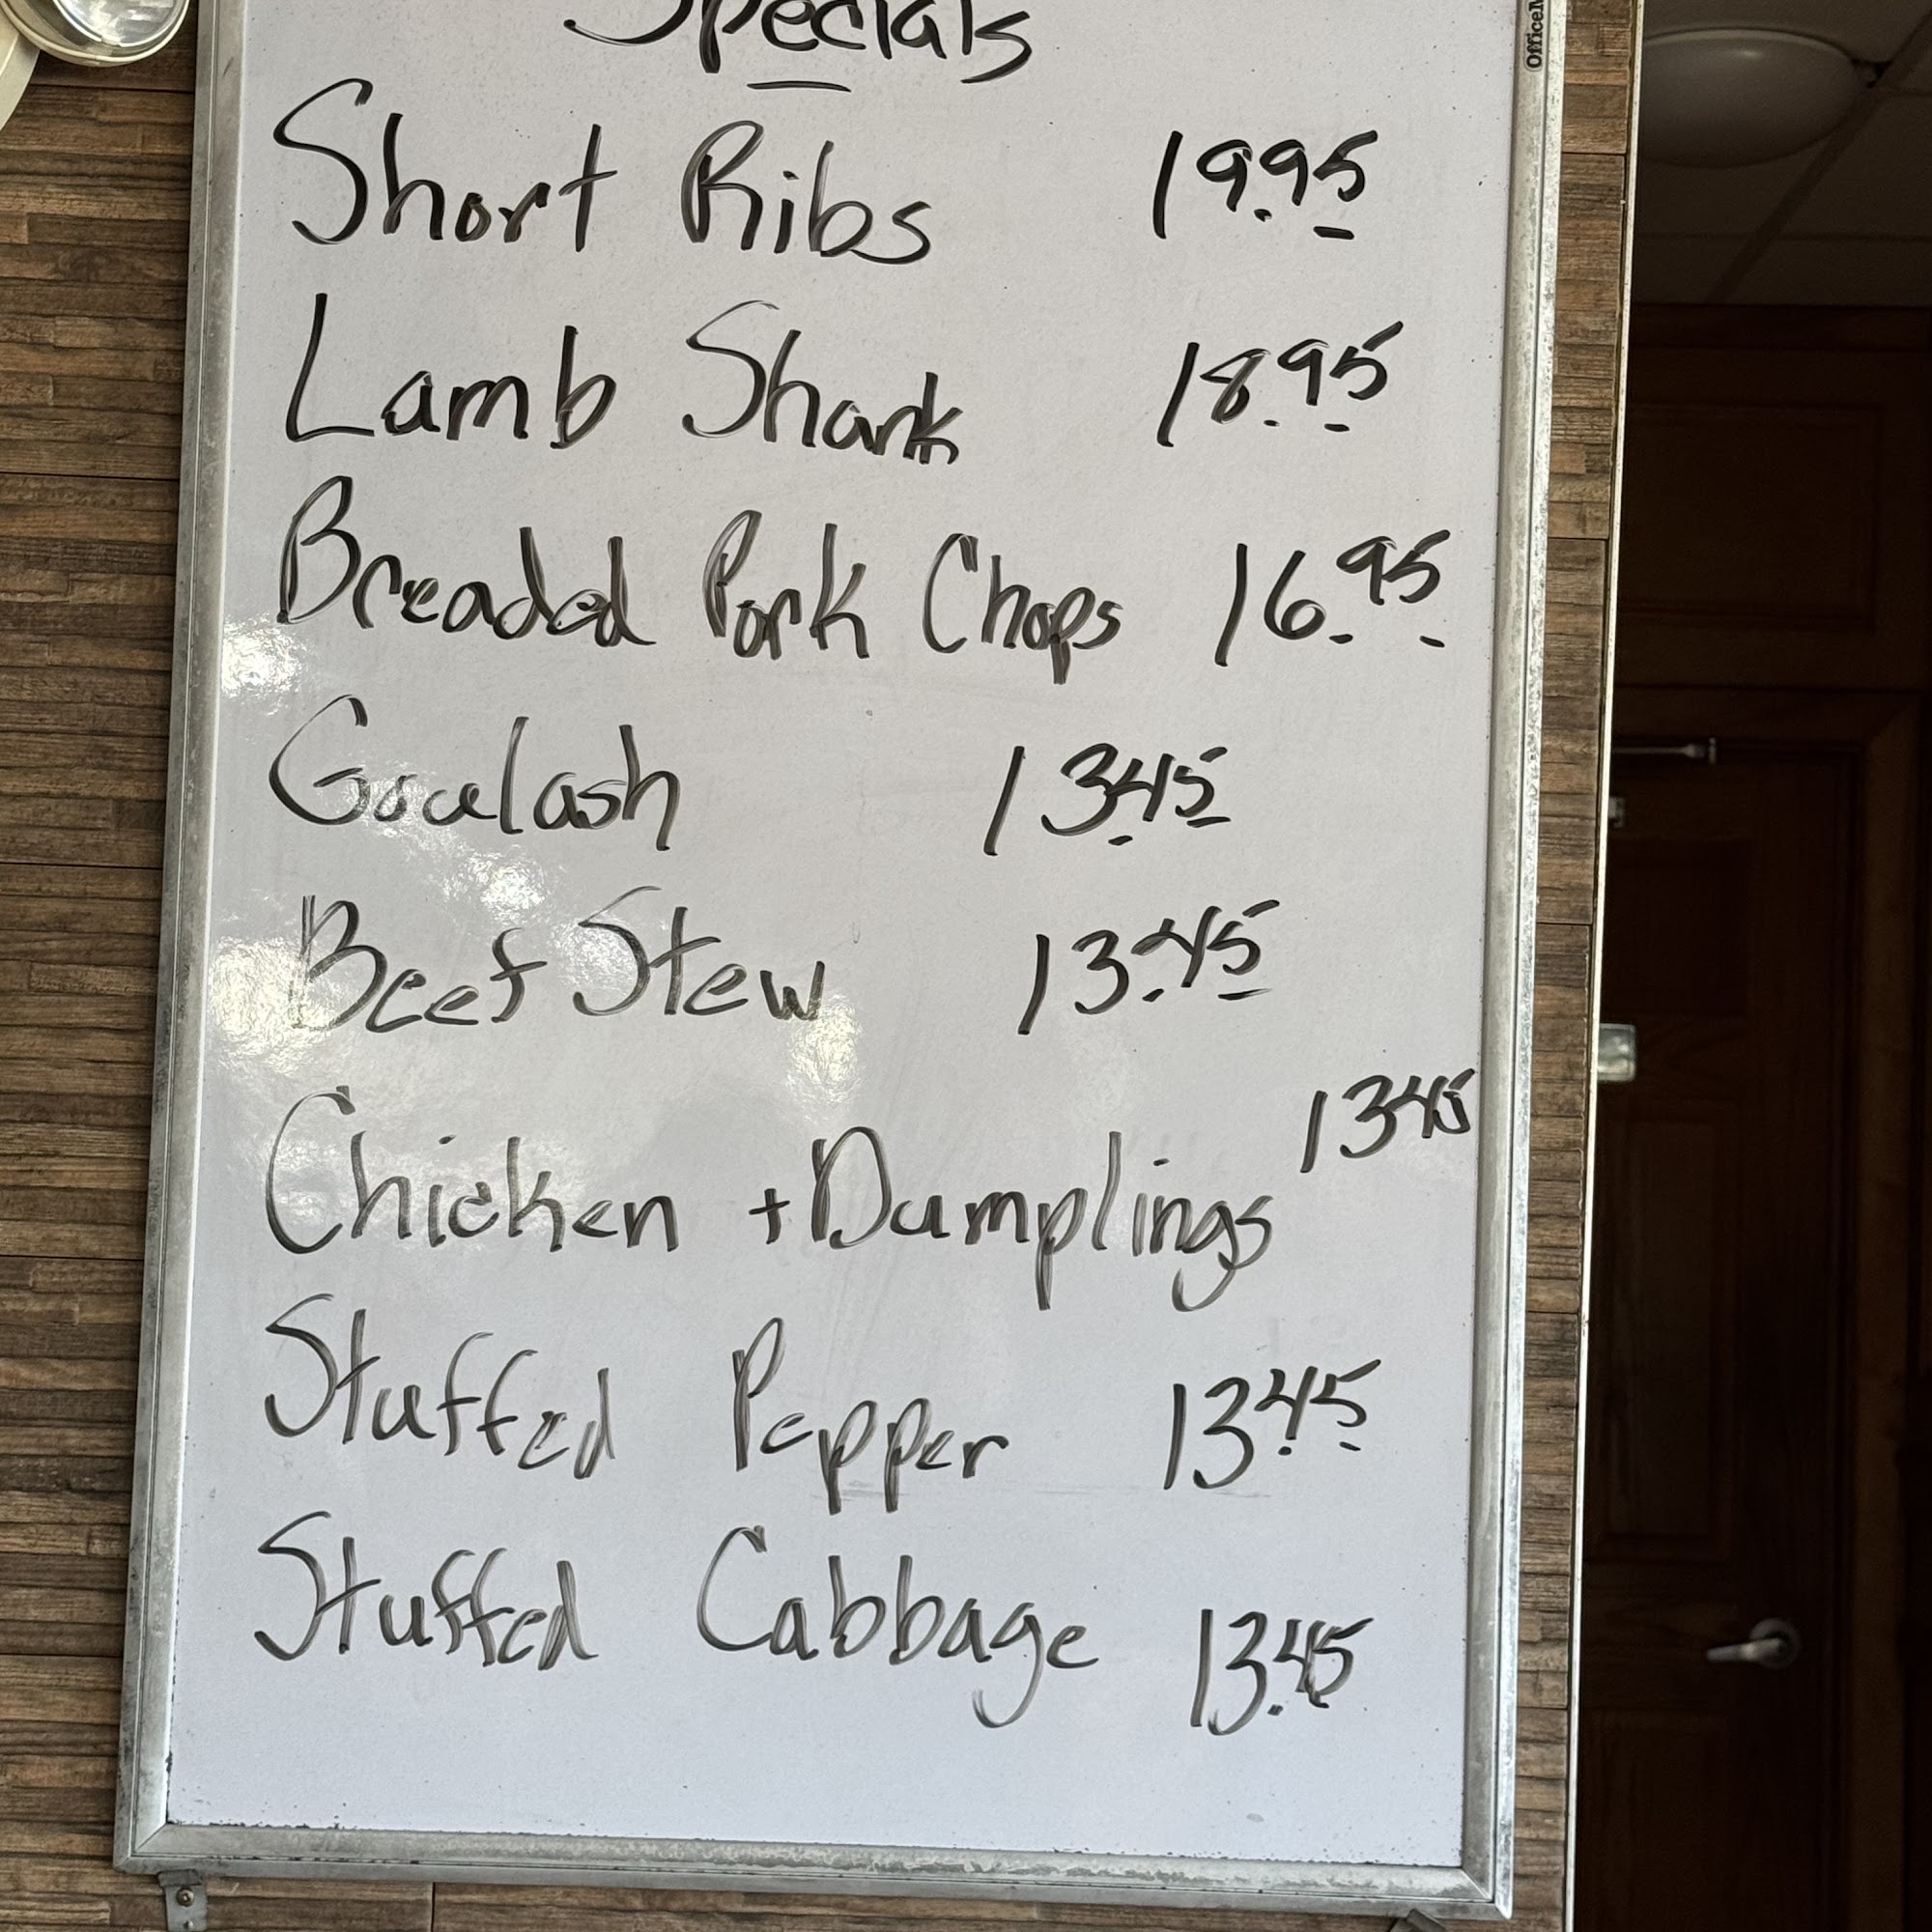 Specials
Short Ribs 19.95
Lamb Shank 18.95
Breaded Pork Chops 16.95
Goulash 13.45
Beef Stew 13.45
Chicken + Dumplings 13.45
Stuffed Pepper 13.45
Stuffed Cabbage 13.45